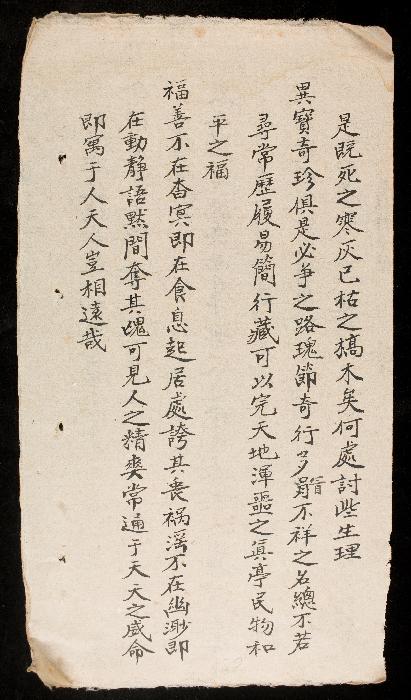 是既死之寒灰已枯之槁木矣何處討些生理
異寶奇珍俱是必争之路瑰節奇行多冒不祥之名總不若
尋常歷履易簡行藏可以完天地渾噩之眞亭民物和
平之福
福善不在杳冥即在食息起居處誇其衷祸滛不在幽渺即
在動靜語默間奪其愧可見人之精爽常通于天天之威命
即寓于人天人豈相遠哉